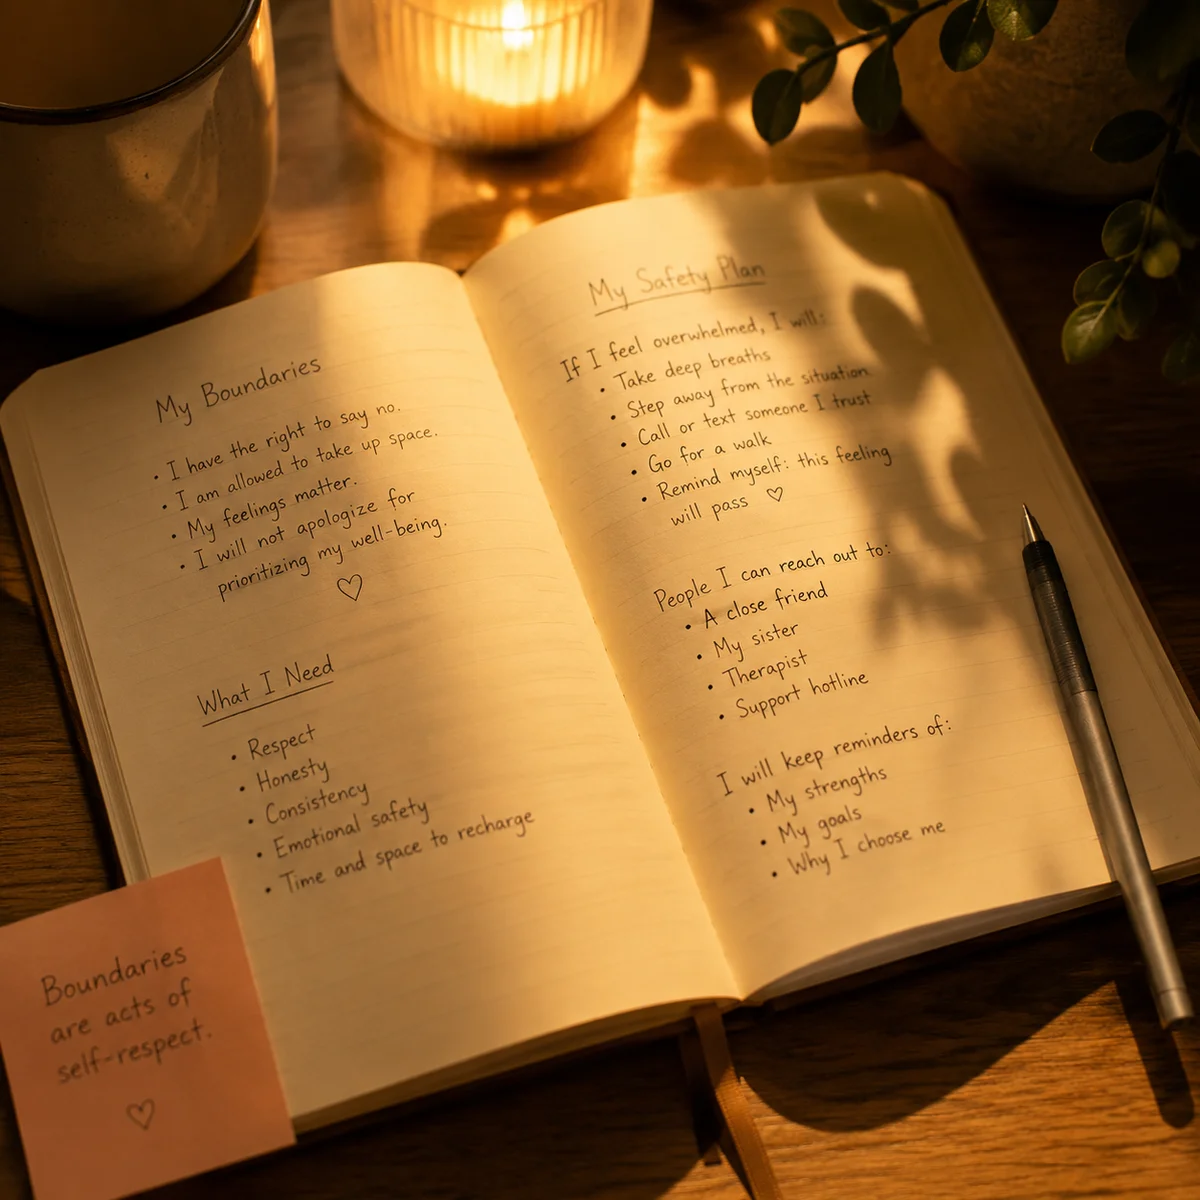 My Boundaries
• I have the right to say no.
• I am allowed to take up space.
• My feelings matter.
• I will not apologize for
prioritizing my well-being.
♡
What I Need
• Respect
• Honesty
• Consistency
• Emotional safety
• Time and space to recharge
Boundaries
are acts of
self-respect.
♡
My Safety Plan
If I feel overwhelmed, I will:
• Take deep breaths
• Step away from the situation
• Call or text someone I trust
• Go for a walk
• Remind myself: this feeling
will pass ♡
People I can reach out to:
• A close friend
• My sister
• Therapist
• Support hotline
I will keep reminders of:
• My strengths
• My goals
• Why I choose me